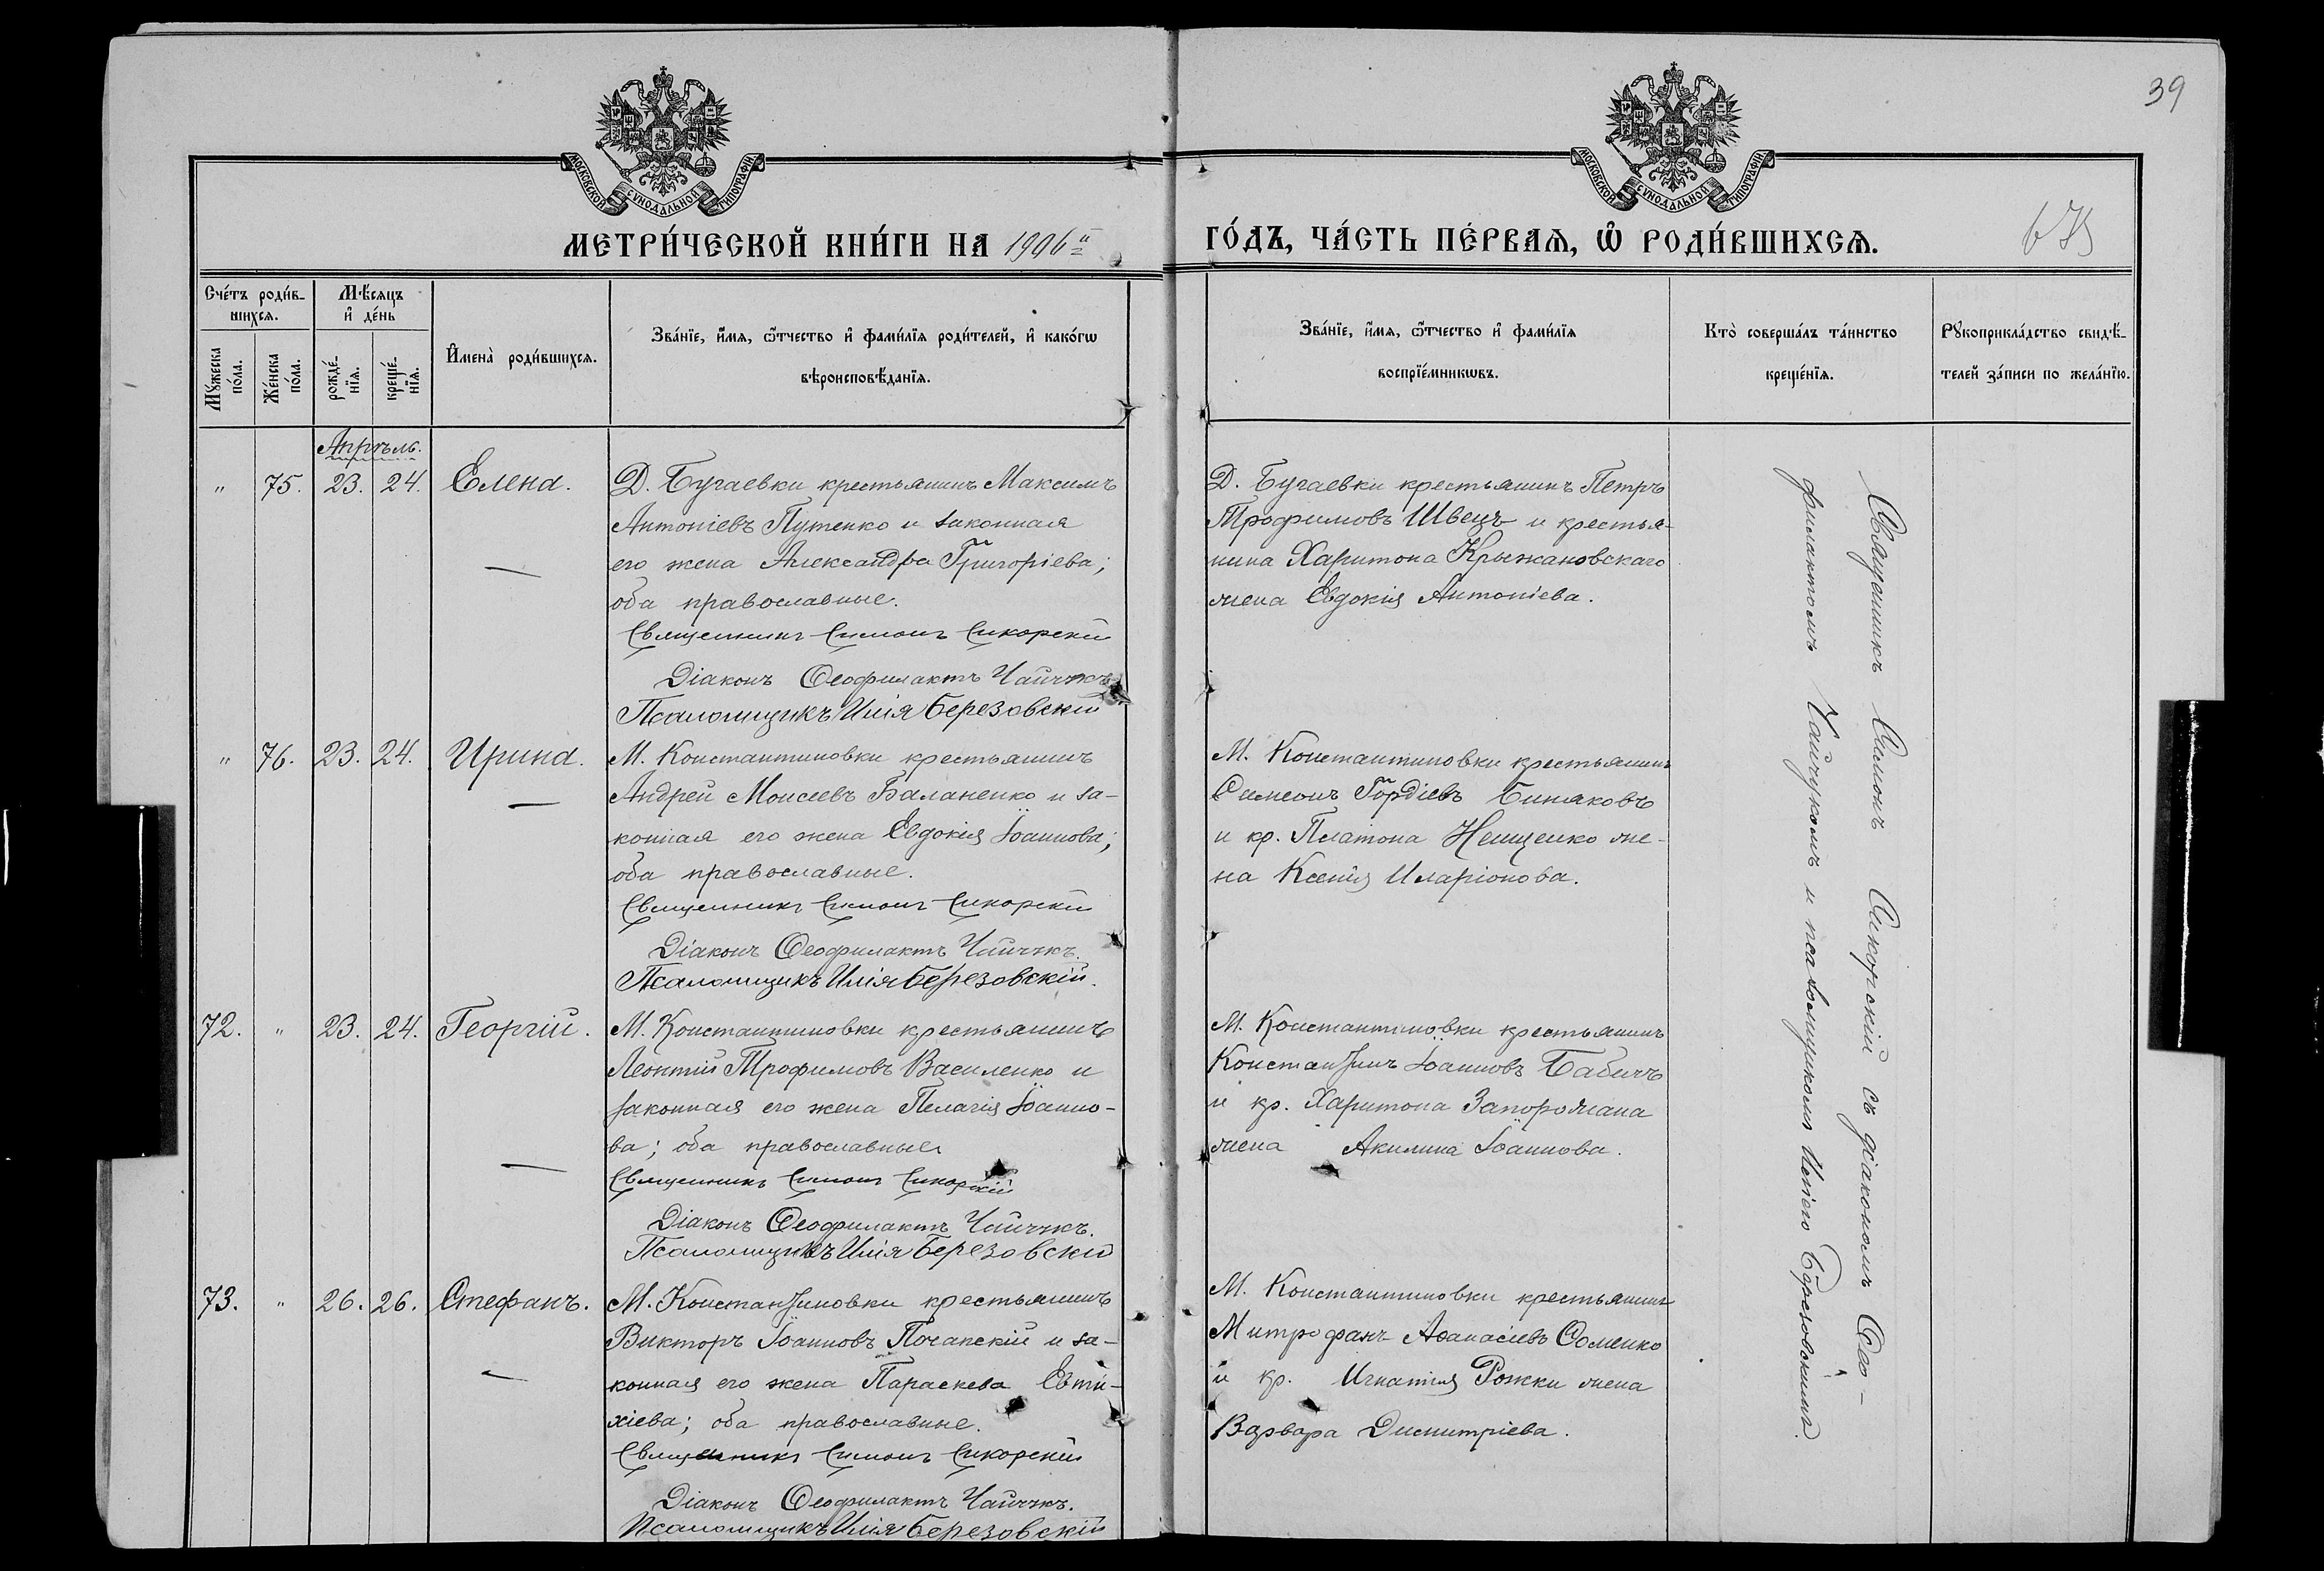 39
МОСКОВСКОЙ СѴНОДАЛЬНОЙ ТИПОГРАФІИ
МОСКОВСКОЙ СѴНОДАЛЬНОЙ ТИПОГРАФІИ
МЕТРИ́ЧЕСКОЙ КНИ́ГИ НА 1906й
ГО́ДЪ, ЧА́СТЬ ПЕ́РВАѦ, Ѡ РОДИ́ВШИХСѦ.
Сче́тъ роди́в-
шихсѧ.
Мꙋ́жеска по́ла.
Же́нска по́ла.
Мѣ́сѧцъ
и҆ де́нь
рожде́-
нїѧ.
креще́-
нїѧ.
И҆мена̀ роди́вшихсѧ.
Зва́нїе, и҆́мѧ, ѻ҆́тчество и҆ фами́лїѧ роди́телей, и҆ како́гѡ
вѣроисповѣ́данїѧ.
Зва́нїе, и҆́мѧ, ѻ҆́тчество и҆ фами́лїѧ
воспрїе́мникѡвъ.
Кто̀ соверша́лъ та́инство
креще́нїѧ.
Рꙋкоприкла́дство свидѣ́-
телей за́писи по жела́нїю.
Апрѣль.
" 75. 23. 24. Елена.
Д. Бугаевки крестьянинъ Максимъ
Антоніевъ Путенко и законная
его жена Александра Григоріева;
оба православные.
Священникъ Симонъ Сикорскій
Діаконъ Ѳеофилактъ Чайчукъ
Псаломщикъ Илія Березовскій
Д. Бугаевки крестьянинъ Петръ
Трофимовъ Швецъ и крестья-
нина Харитона Крыжановскаго
жена Евдокія Антоніева.
" 76. 23. 24. Ирина.
М. Константиновки крестьянинъ
Андрей Моисеевъ Баланенко и за-
конная его жена Евдокія Іоаннова;
оба православные.
Священникъ Симонъ Сикорскій
Діаконъ Ѳеофилактъ Чайчукъ.
Псаломщикъ Илія Березовскій.
М. Константиновки крестьянинъ
Симеонъ Гордіевъ Биняковъ
и кр. Платона Нещенко же-
на Ксенія Иларіонова.
72. " 23. 24. Георгій.
М. Константиновки крестьянинъ
Леонтій Трофимовъ Василенко и
законная его жена Пелагія Іоанно-
ва; оба православные
Священникъ Симонъ Сикорскій
Діаконъ Ѳеофилактъ Чайчукъ.
Псаломщикъ Илія Березовскій
М. Константиновки крестьянинъ
Константинъ Іоанновъ Бабичъ
и кр. Харитона Запорожана
жена Акилина Іоаннова.
73. " 26. 26. Стефанъ.
М. Константиновки крестьянинъ
Викторъ Іоанновъ Почапскій и за-
конная его жена Параскева Евти-
хіева; оба православные.
Священникъ Симонъ Сикорскій
Діаконъ Ѳеофилактъ Чайчукъ.
Псаломщикъ Илія Березовскій
М. Константиновки крестьянинъ
Митрофанъ Аѳанасіевъ Ѳоменко
и кр. Игнатія Рожки жена
Варвара Димитріева.
Священникъ Симонъ Сикорскій съ діакономъ Ѳео-
филактомъ Чайчукомъ и псаломщикомъ Иліею Березовскимъ.